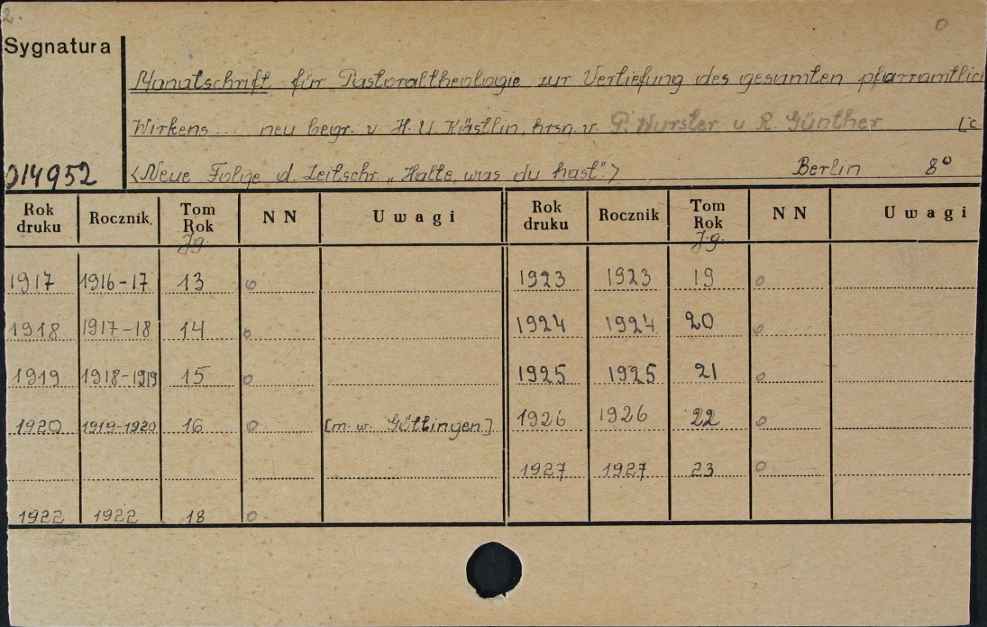 2.
0
Sygnatura
Monatschrift für Pastoraltheologie zur Vertiefung des gesamten pfarramtlich
Wirkens... neu begr. v. H. U. Köstlin, hrsg. v. P. Wurster u. R. Günther
014952
<Neue Folge d. Zeitschr. „Halte, was du hast".> Berlin 8°
Rok druku Rocznik Tom Rok Jg. NN Uwagi Rok druku Rocznik Tom Rok Jg. NN Uwagi
1917 1916-17 13 0 1923 1923 19 0
1918 1917-18 14 0 1924 1924 20 0
1919 1918-1919 15 0 1925 1925 21 0
1920 1919-1920 16 0 [m. w. Göttingen.] 1926 1926 22 0
1927 1927 23 0
1922 1922 18 0